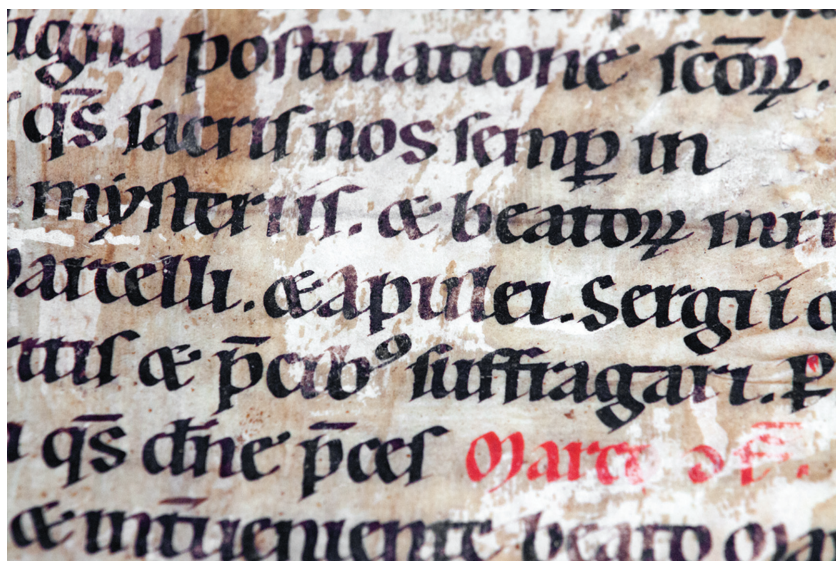 agna postulatione scōꝝ.
q̄s sacris nos semꝑ in
mysteriis. & beatoꝝ mri
Marcelli. & apulei. Sergii
& p̄cibꝰ suffragari. P̄
q̄s dn̄e p̄ces Marce
& int̄ueniente beato